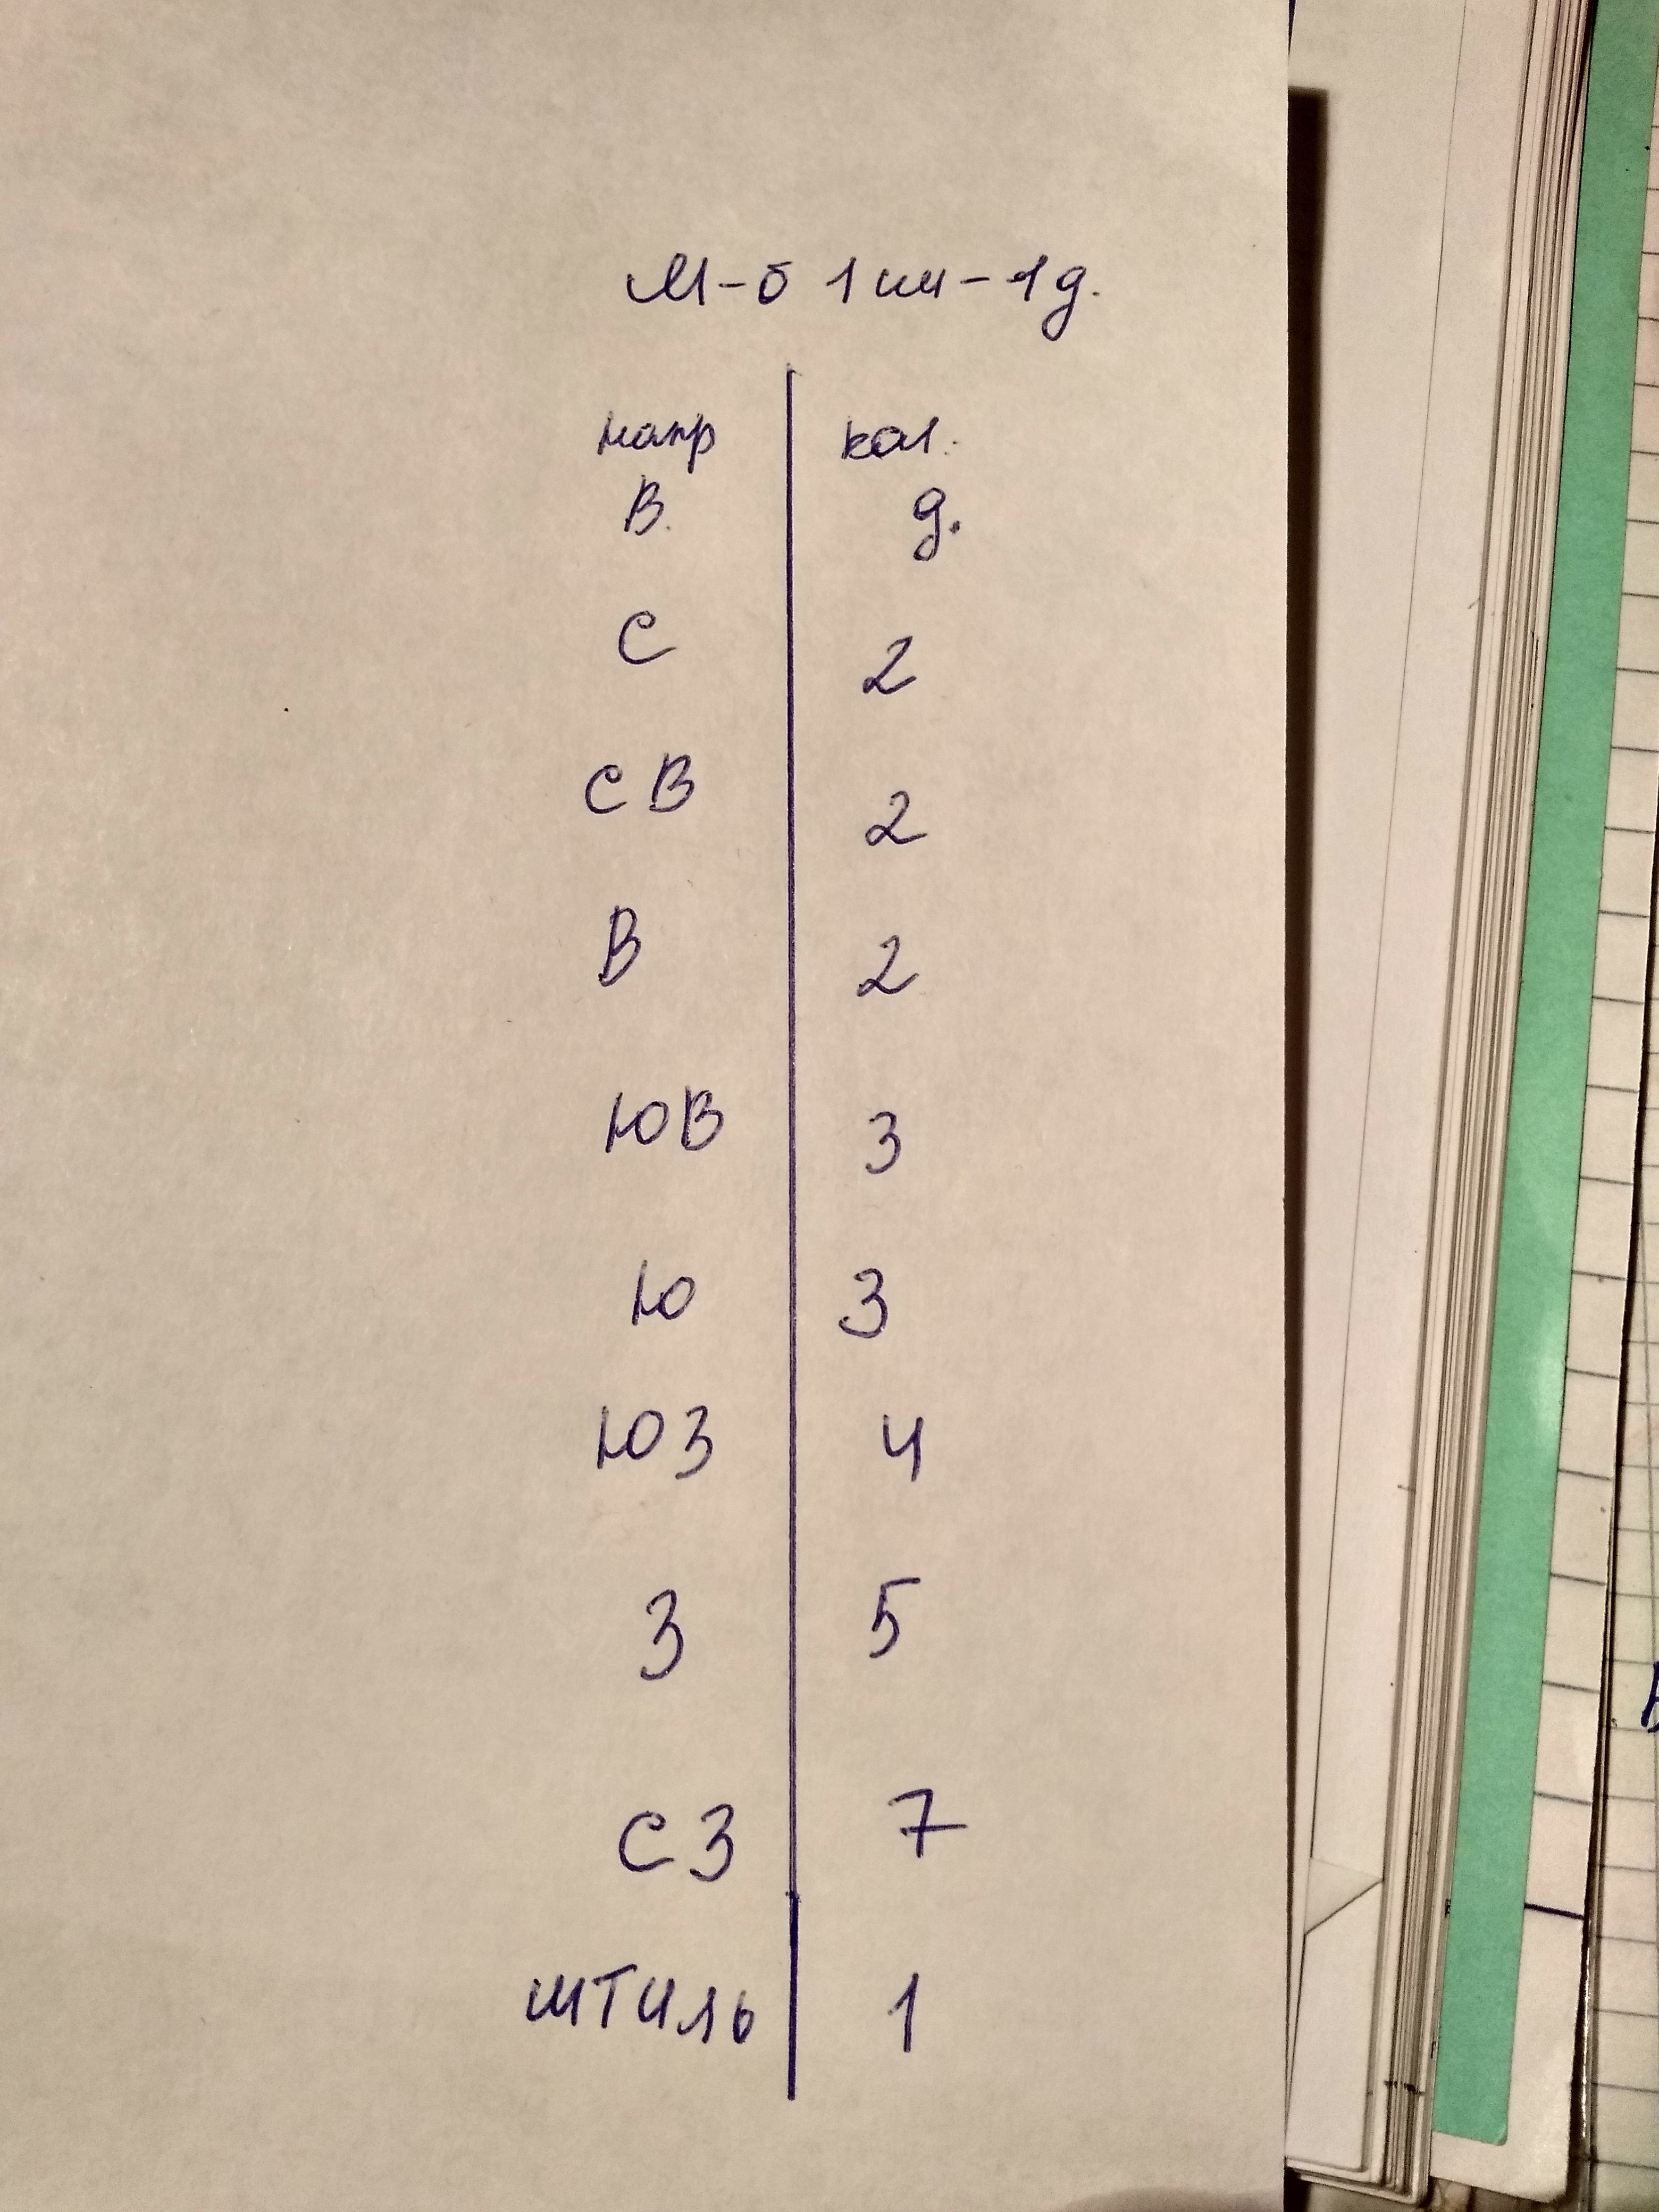 М-б 1см-1д.
напр кол.
В. д.
С 2
СВ 2
В 2
ЮВ 3
Ю 3
ЮЗ 4
З 5
СЗ 7
ШТИЛЬ 1